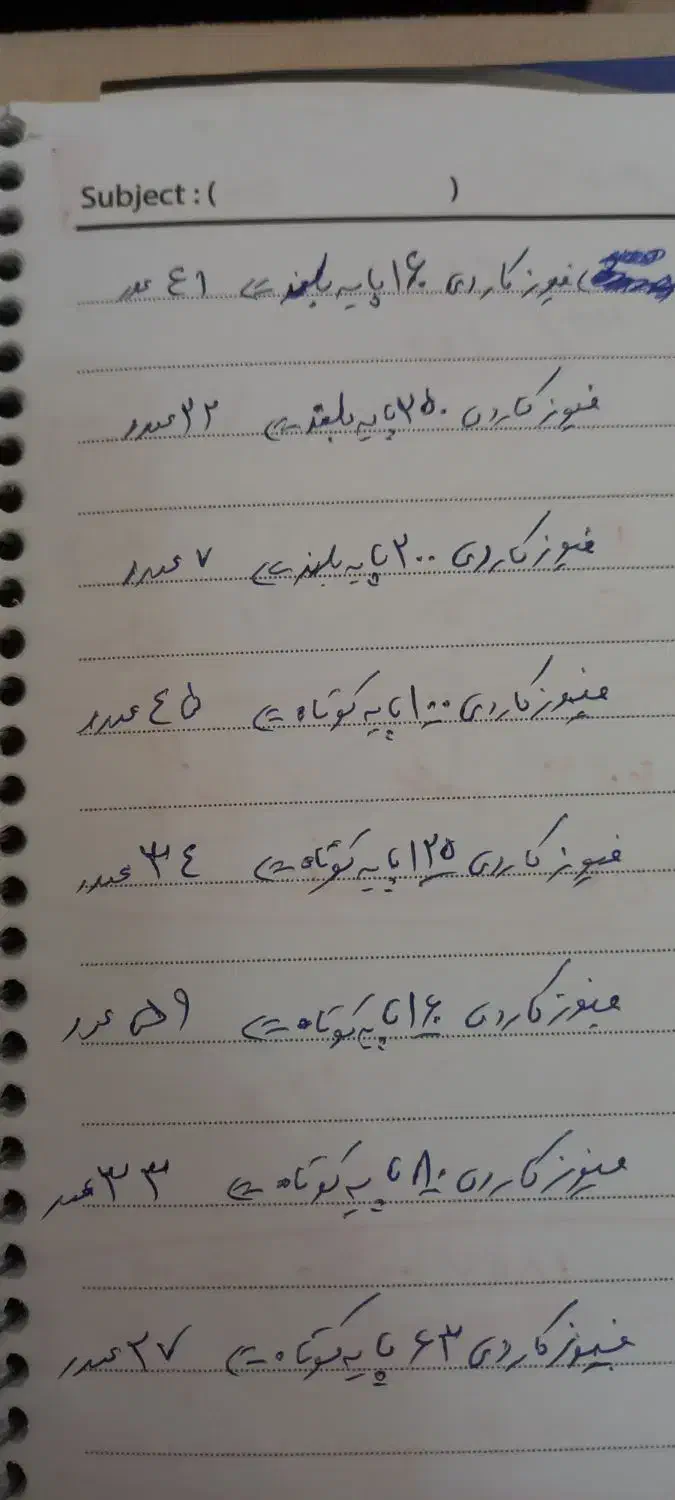 Subject : ( )
فیوز کاردی ۱۶۰ پایه بلند ⇐ ٤۱ عدد
فیوز کاردی ۲۵۰ پایه بلند ⇐ ۳۲ عدد
فیوز کاردی ۲۰۰ پایه بلند ⇐ ۷ عدد
فیوز کاردی ۱۰۰ پایه کوتاه ⇐ ٤۵ عدد
فیوز کاردی ۱۲۵ پایه کوتاه ⇐ ۳٤ عدد
فیوز کاردی ۱۶۰ پایه کوتاه ⇐ ۵۹ عدد
فیوز کاردی ۸۰ پایه کوتاه ⇐ ۳۳ عدد
فیوز کاردی ۶۳ پایه کوتاه ⇐ ۲۷ عدد